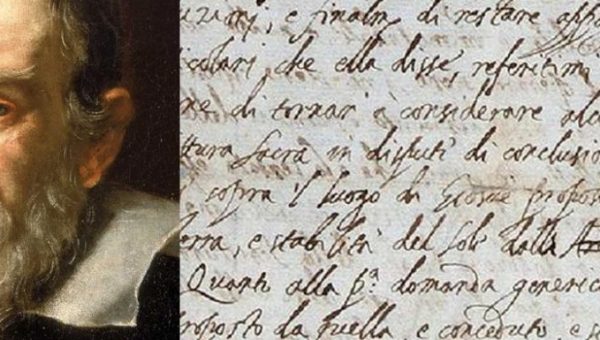 e finalm di restare appa
colari che ella disse, referitimi
ne di tornar à considerare alc
ttura Sacra in disputi di conclusio
sopra il luogo di Giosuè propos
erra, e stabilità del Sole dalla
Quanto alla pª domanda generic
roposto da quella, e conceduto, e s